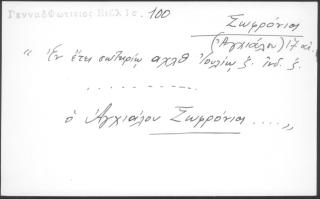 Γενναδ��ωτισσος Βιβλ 1σ. 100
Σωφρόνιος
(Ἀγχιάλου) 17 αι.
" Ἐν ἔτει σωτηρίῳ αχλθ Ἰουλίῳ ζ. Ἰνδ. ζ.
. . . . . . . . . .
ὁ Ἀγχιάλου Σωφρόνιος . . . . „